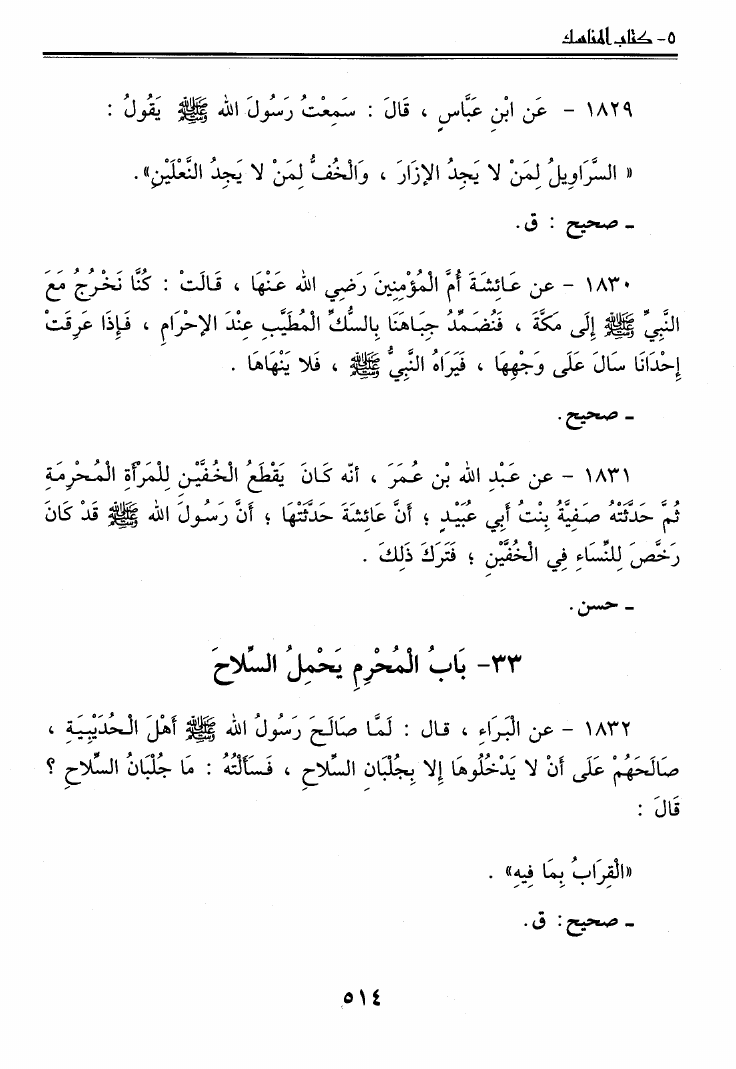 ٥- كتاب المناسك
١٨٢٩ - عَن ابْنِ عَبَّاسٍ ، قَالَ : سَمِعْتُ رَسُولَ الله ﷺ يَقُولُ :
« السَّرَاوِيلُ لِمَنْ لا يَجِدُ الإزَارَ ، وَالْخُفُّ لِمَنْ لا يَجِدُ النَّعْلَيْنِ».
ـ صحيح : ق.
١٨٣٠ - عن عَائِشَةَ أُمِّ الْمُؤْمِنِينَ رَضِي الله عَنْهَا ، قَالَتْ : كُنَّا نَخْرُجُ مَعَ
النَّبِيِّ ﷺ إِلَى مَكَّةَ ، فَنُضَمِّدُ جِبَاهَنَا بِالسُّكِّ الْمُطَيَّبِ عِنْدَ الإحْرَامِ ، فَإِذَا عَرِقَتْ
إِحْدَانَا سَالَ عَلَى وَجْهِهَا ، فَيَرَاهُ النَّبِيُّ ﷺ ، فَلا يَنْهَاهَا .
ـ صحيح.
١٨٣١ - عن عَبْدِ الله بْنِ عُمَرَ ، أنّه كَانَ يَقْطَعُ الْخُفَّيْنِ لِلْمَرْأَةِ الْمُحْرِمَةِ
ثُمَّ حَدَّثَتْهُ صَفِيَّةُ بِنْتُ أَبِي عُبَيْدٍ ؛ أَنَّ عَائِشَةَ حَدَّثَتْهَا ؛ أَنَّ رَسُولَ الله ﷺ قَدْ كَانَ
رَخَّصَ لِلنِّسَاءِ فِي الْخُفَّيْنِ ؛ فَتَرَكَ ذَلِكَ .
ـ حسن.
٣٣- بَابُ الْمُحْرِمِ يَحْمِلُ السِّلاحَ
١٨٣٢ - عن الْبَرَاءِ ، قال : لَمَّا صَالَحَ رَسُولُ الله ﷺ أَهْلَ الْحُدَيْبِيَةِ ،
صَالَحَهُمْ عَلَى أَنْ لا يَدْخُلُوهَا إِلا بِجُلْبَانِ السِّلاحِ ، فَسَأَلْتُهُ : مَا جُلْبَانُ السِّلاحِ ؟
قَالَ :
«الْقِرَابُ بِمَا فِيهِ» .
ـ صحيح: ق.
٥١٤